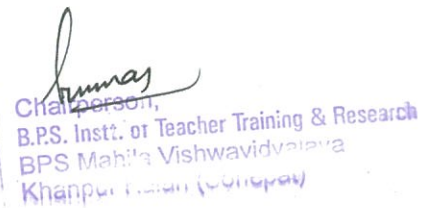 Chairperson,
B.P.S. Instt. of Teacher Training & Research
BPS Mahila Vishwavidyalaya
Khanpur Kalan (Sonepat)